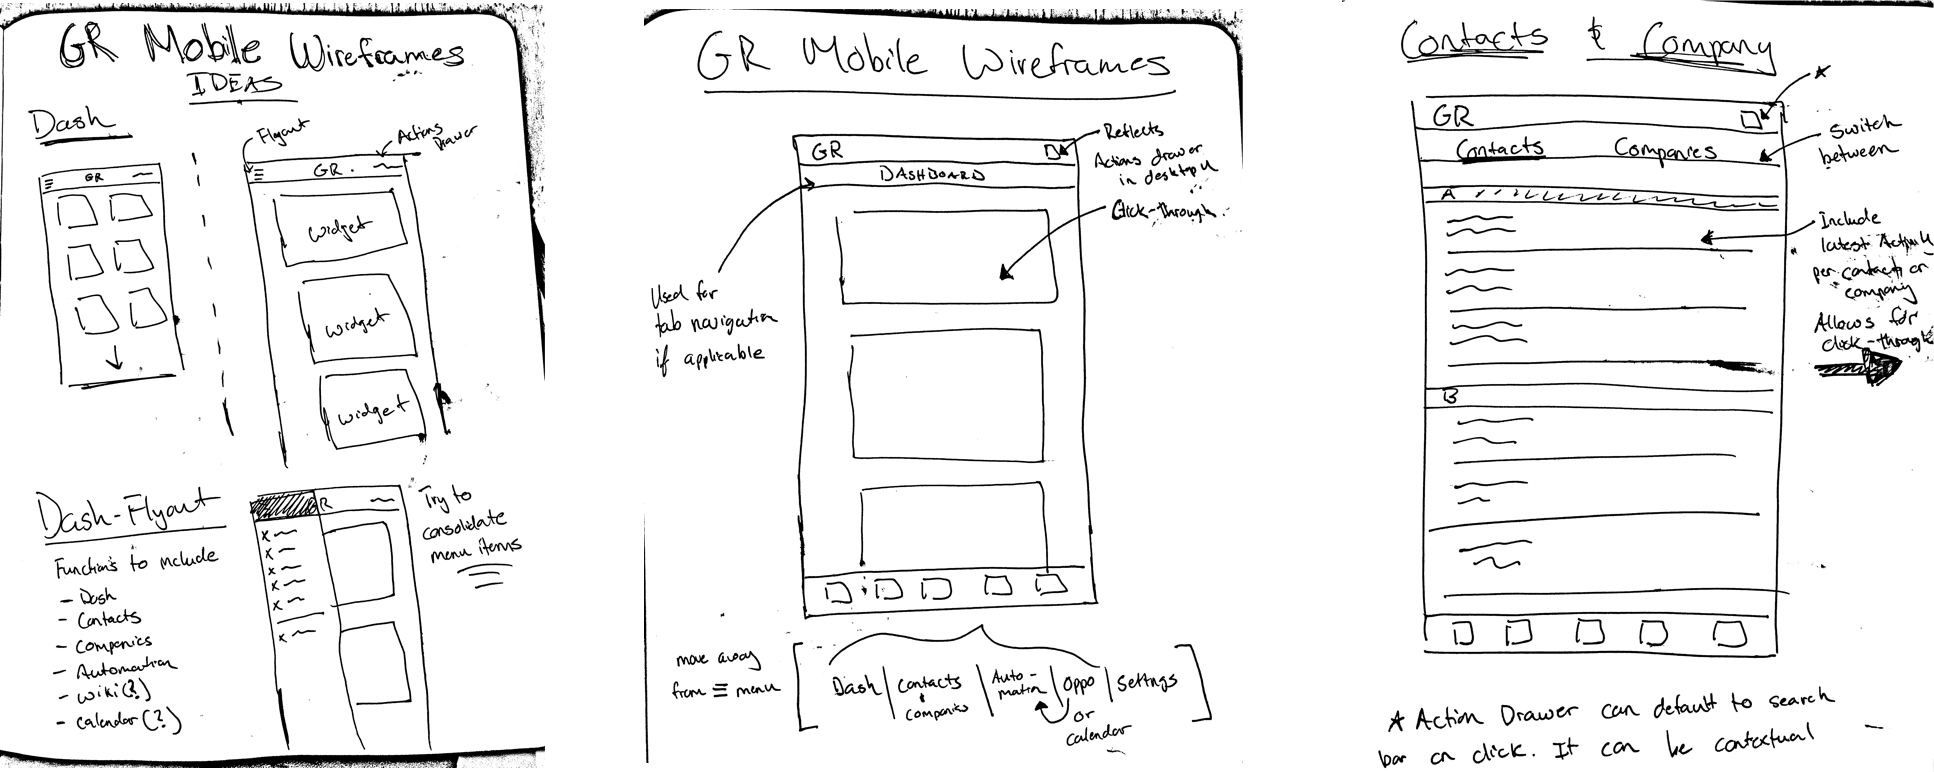 GR Mobile Wireframes
IDEAS
Dash
Flyout
Actions
Drawer
GR
GR.
widget
widget
widget
Dash-Flyout
Functions to include
- Dash
- Contacts
- Companies
- Automation
- Wiki(?)
- Calendar(?)
R
Try to
consolidate
menu items
GR Mobile Wireframes
GR
DASHBOARD
Reflects
Actions drawer
in desktop
Click-through
Used for
tab navigation
if applicable
move away
from ≡ menu
Dash | Contacts & Companies | Auto-mation | Oppo | Settings
or
calendar
Contacts & Company
GR
Contacts Companies
Switch
between
A
Include
latest Activity
per contact or
company
Allows for
click-through
B
* Action Drawer can default to search
bar on click. It can be contextual